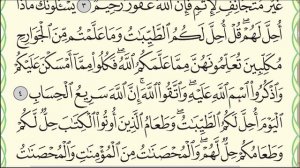 غَيْرَ مُتَجَانِفٍ لِّإِثْمٍ فَإِنَّ ٱللَّهَ غَفُورٌ رَّحِيمٌ ٣ يَسْـَٔلُونَكَ مَاذَآ
أُحِلَّ لَهُمْ قُلْ أُحِلَّ لَكُمُ ٱلطَّيِّبَـٰتُ وَمَا عَلَّمْتُم مِّنَ ٱلْجَوَارِحِ
مُكَلِّبِينَ تُعَلِّمُونَهُنَّ مِمَّا عَلَّمَكُمُ ٱللَّهُ فَكُلُوا۟ مِمَّآ أَمْسَكْنَ عَلَيْكُمْ
وَٱذْكُرُوا۟ ٱسْمَ ٱللَّهِ عَلَيْهِ وَٱتَّقُوا۟ ٱللَّهَ إِنَّ ٱللَّهَ سَرِيعُ ٱلْحِسَابِ ٤
ٱلْيَوْمَ أُحِلَّ لَكُمُ ٱلطَّيِّبَـٰتُ وَطَعَامُ ٱلَّذِينَ أُوتُوا۟ ٱلْكِتَـٰبَ حِلٌّ لَّكُمْ
وَطَعَامُكُمْ حِلٌّ لَّهُمْ وَٱلْمُحْصَنَـٰتُ مِنَ ٱلْمُؤْمِنَـٰتِ وَٱلْمُحْصَنَـٰتُ